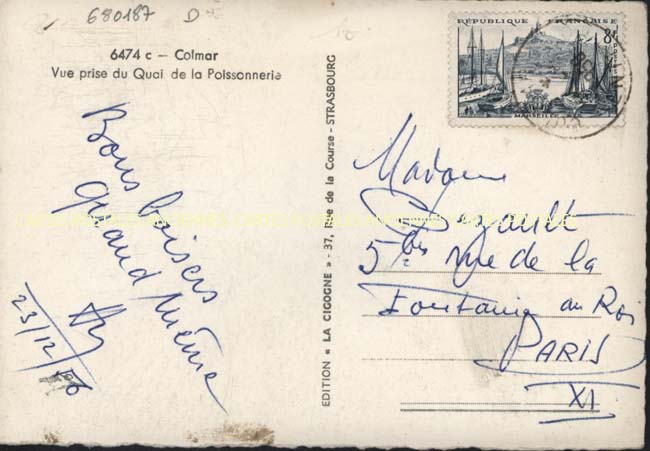 680187 D
6474 c – Colmar
Vue prise du Quai de la Poissonnerie
Bons baisers
quand même
23/12/56
EDITION « LA CIGOGNE » - 37, Rue de la Course - STRASBOURG
REPUBLIQUE FRANÇAISE
8F
MARSEILLE
Madame
5 bis rue de la
Fontaine au Roi
PARIS
XI